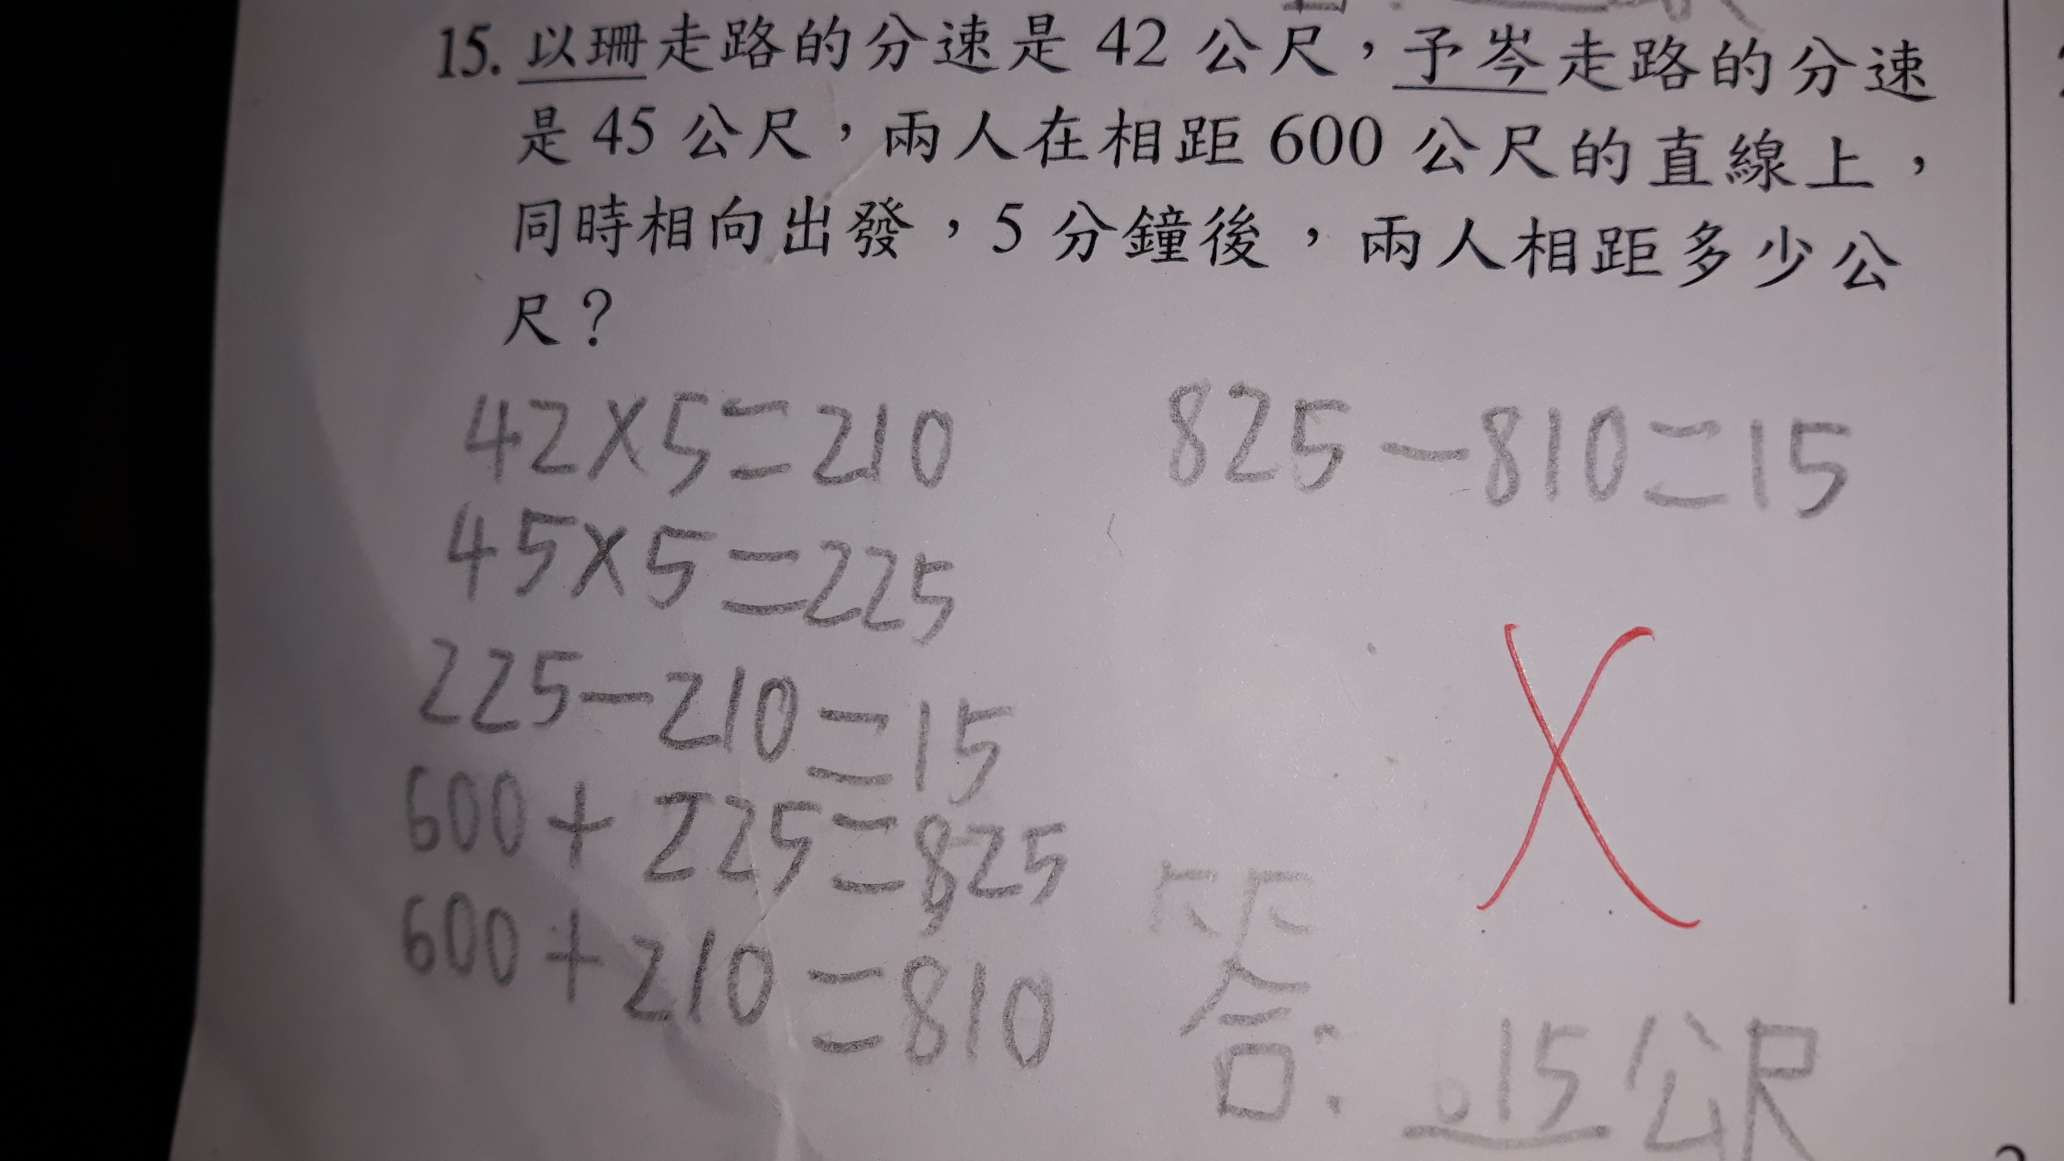 15. 以珊走路的分速是 42 公尺，予岑走路的分速
是 45 公尺，兩人在相距 600 公尺的直線上，
同時相向出發，5 分鐘後，兩人相距多少公
尺？
42×5=210
45×5=225
225-210=15
600+225=825
600+210=810
825-810=15
答：15公尺